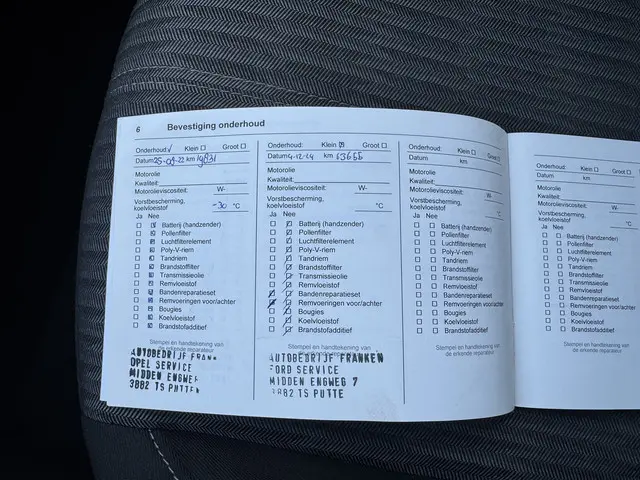 6 Bevestiging onderhoud
Onderhoud: Klein Groot
Datum 25-04-22 km
Motorolie
Kwaliteit:
Motorolieviscositeit: W-
Vorstbescherming,
koelvloeistof -30 °C
Ja Nee
Batterij (handzender)
Pollenfilter
Luchtfilterelement
Poly-V-riem
Tandriem
Brandstoffilter
Transmissieolie
Remvloeistof
Bandenreparatieset
Remvoeringen voor/achter
Bougies
Koelvloeistof
Brandstofadditief
Stempel en handtekening van
de erkende reparateur
AUTOBEDRIJF FRANK
OPEL SERVICE
MIDDEN ENGWE
3882 TS PUTTE
Onderhoud: Klein Groot
Datum 4-12-24 km 53655
Motorolie
Kwaliteit:
Motorolieviscositeit: W-
Vorstbescherming,
koelvloeistof °C
Ja Nee
Batterij (handzender)
Pollenfilter
Luchtfilterelement
Poly-V-riem
Tandriem
Brandstoffilter
Transmissieolie
Remvloeistof
Bandenreparatieset
Remvoeringen voor/achter
Bougies
Koelvloeistof
Brandstofadditief
Stempel en handtekening van
AUTOBEDRIJF FRANKEN
FORD SERVICE
MIDDEN ENGWEG 7
3882 TS PUTTE
Onderhoud: Klein Groot
Datum km
Motorolie
Kwaliteit:
Motorolieviscositeit: W-
Vorstbescherming,
koelvloeistof °C
Ja Nee
Batterij (handzender)
Pollenfilter
Luchtfilterelement
Poly-V-riem
Tandriem
Brandstoffilter
Transmissieolie
Remvloeistof
Bandenreparatieset
Remvoeringen voor/achter
Bougies
Koelvloeistof
Brandstofadditief
Stempel en handtekening van
de erkende reparateur
Onderhoud: Klein
Datum km
Motorolie
Kwaliteit:
Motorolieviscositeit: W-
Vorstbescherming,
koelvloeistof
Ja Nee
Batterij (handzender)
Pollenfilter
Luchtfilterelement
Poly-V-riem
Tandriem
Brandstoffilter
Transmissieolie
Remvloeistof
Bandenreparatieset
Remvoeringen voor/achter
Bougies
Koelvloeistof
Brandstofadditief
Stempel en handtekening van
de erkende reparateur